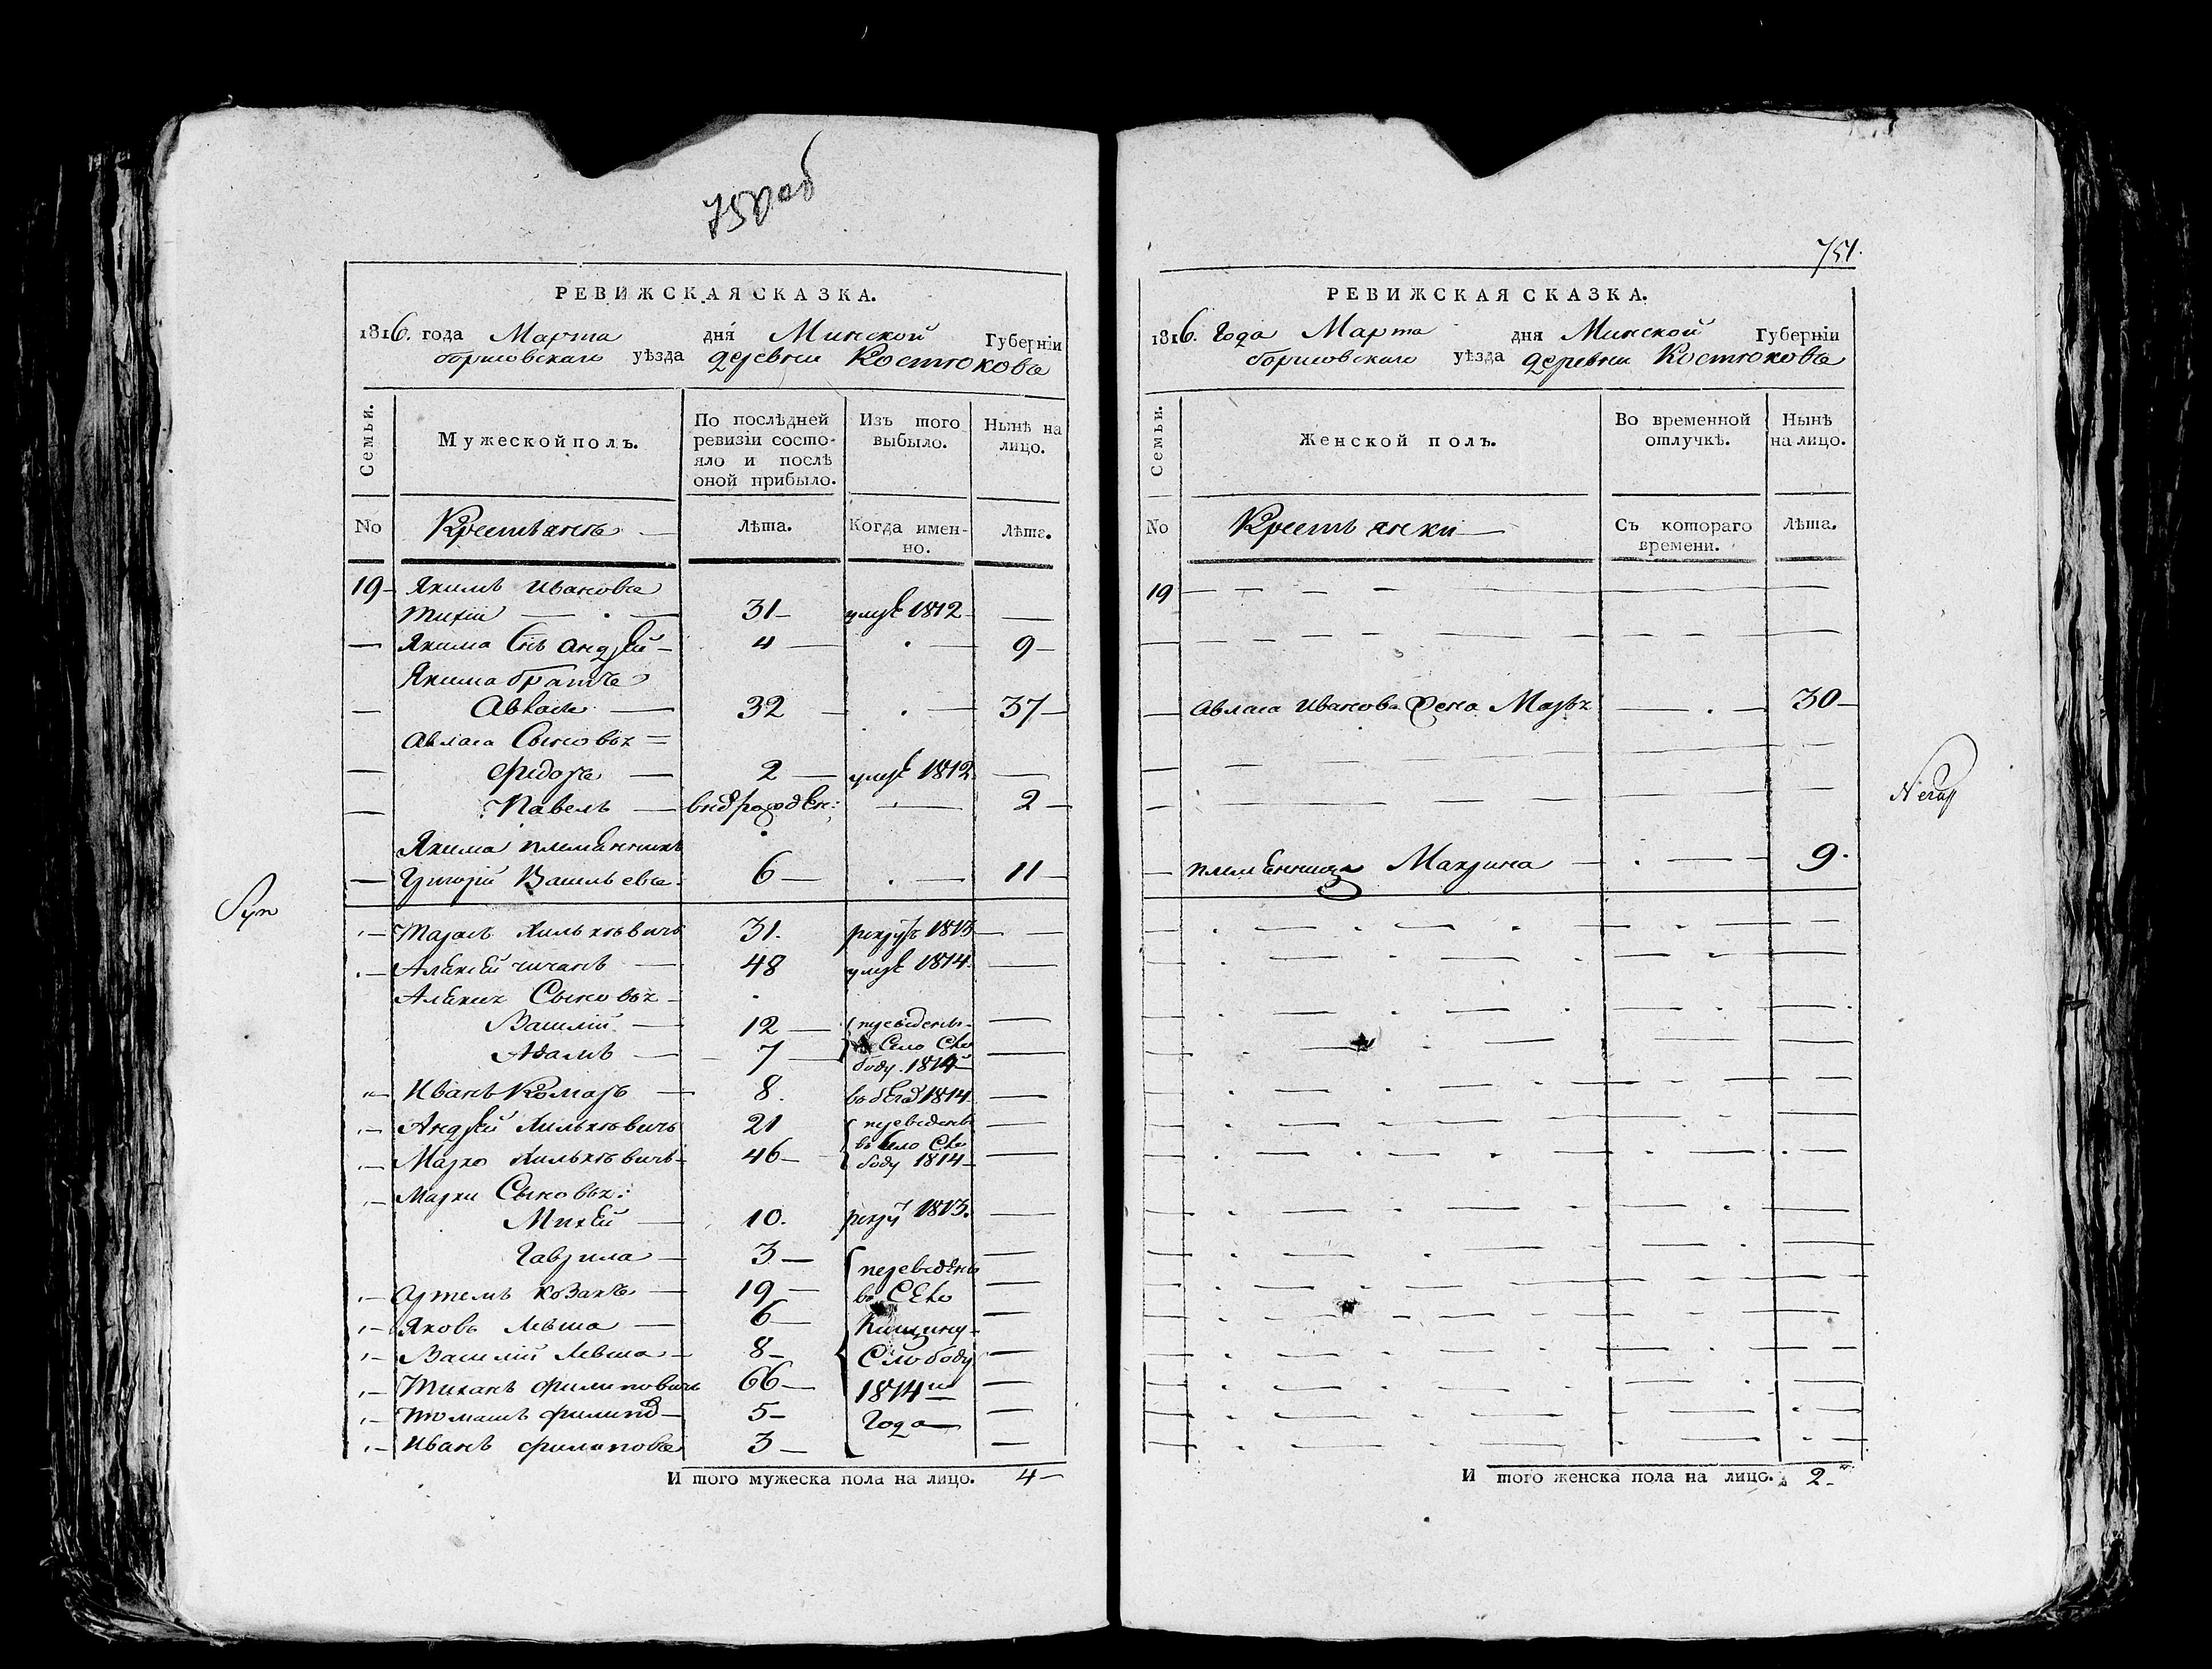 750 об
РЕВИЖСКАЯ СКАЗКА.
1816. года Марта дня Минской Губерніи
борисовскаго уѣзда деревни Костюкова
Семьи.
Мужеской полъ.
По послѣдней ревизіи состояло и послѣ оной прибыло.
Изъ того выбыло.
Нынѣ на лицо.
No Крестьянъ — Лѣта. Когда именно. Лѣта.
19 - Якимъ Ивановъ
Тихій — 31 - умре 1812 - —
— Якима Снъ Андрей - 4 — . — 9 -
Якима братъ
— Авласъ — 32 — . — 37 -
Авласа Сыновья =
— Федоръ — 2 — умре 1812 —
— Павелъ — внов рожден: — 2 -
Якима племянникъ
— Григорій Васильевъ. 6 — . — 11 -
Syn
Тарасъ Хильковичъ 31. рекрут 1813 — —
Алексей чичанъ — 48 умре 1814. —
Алексея Сыновья -
Василій — 12 — переведены - —
Адамъ — 7 — в Село Сло
боду. 1814 —
Иванъ Комаръ — 8. в бегах 1814 —
Андрей Хильковичъ 21 переведенъ —
въ Село Сло
Марко Хильковичъ - 46 — боду 1814 —
Марки Сыновья:
Михей — 10. рекрут 1813. —
Гаврила — 3 — переведены —
Артемъ козакъ — 19 — въ Село —
Яковъ Левша — 6 — —
Василій Левша — 8 - Слободу —
Филиповичъ 66 — 1814го —
Томашъ филипов — 5 - Года —
Иванъ филиповъ 3 — —
И того мужеска пола на лицо. 4 —
751.
РЕВИЖСКАЯ СКАЗКА.
1816. Года Марта дня Минской Губерніи
борисовскаго уѣзда деревни Костюкова
Семьи.
Женской полъ.
Во временной отлучкѣ.
Нынѣ на лицо.
No Крестьянки — Съ котораго времени. Лѣта.
19
— Авласа Иванова жена — . — 30 -
— племянница Макрина — . — 9 .
И того женска пола на лицо. 2 -